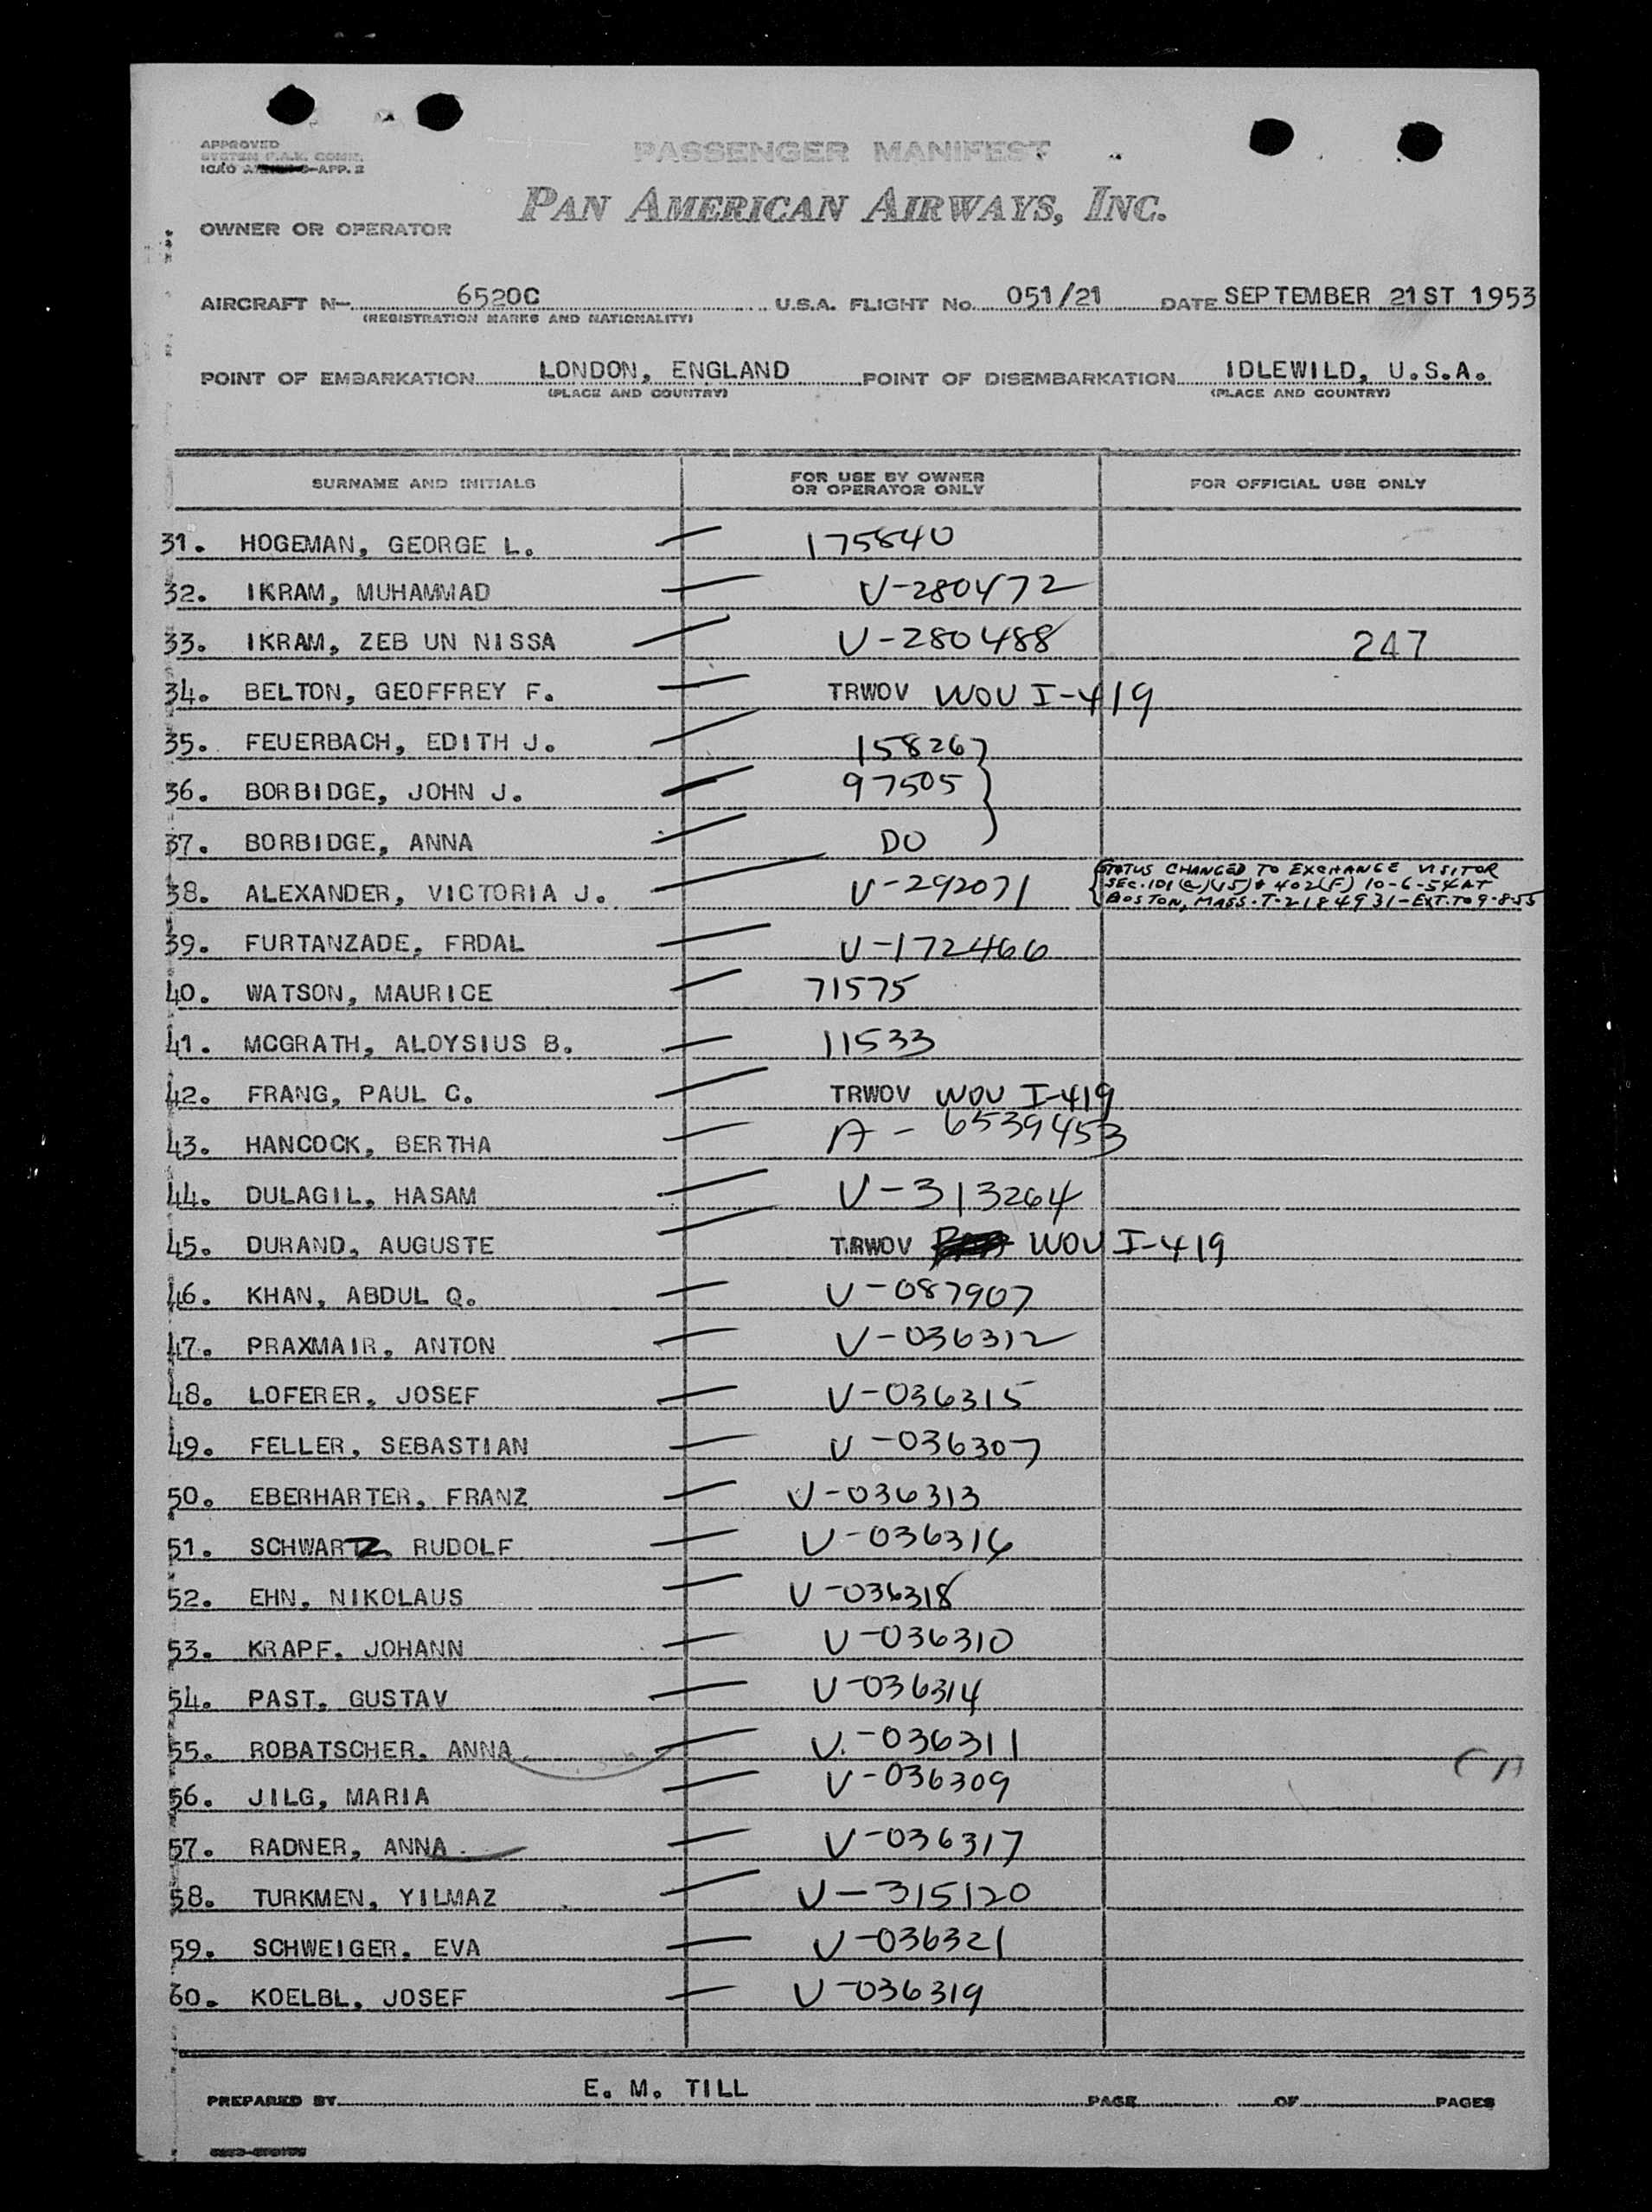 APPROVED
SYSTEM P.A.X. COMM.
ICAO APP. 2
PASSENGER MANIFEST
PAN AMERICAN AIRWAYS, INC.
OWNER OR OPERATOR
AIRCRAFT N— 6520C U.S.A. FLIGHT No. 051/21 DATE SEPTEMBER 21ST 1953
(REGISTRATION MARKS AND NATIONALITY)
POINT OF EMBARKATION LONDON, ENGLAND POINT OF DISEMBARKATION IDLEWILD, U.S.A.
(PLACE AND COUNTRY) (PLACE AND COUNTRY)
SURNAME AND INITIALS FOR USE BY OWNER OR OPERATOR ONLY FOR OFFICIAL USE ONLY
31. HOGEMAN, GEORGE L. — 175840
32. IKRAM, MUHAMMAD — V-280472
33. IKRAM, ZEB UN NISSA — V-280488 247
34. BELTON, GEOFFREY F. — TRWOV WOV I-419
35. FEUERBACH, EDITH J. — 158267
36. BORBIDGE, JOHN J. — 97505
37. BORBIDGE, ANNA — DO
38. ALEXANDER, VICTORIA J. — V-292071 STATUS CHANGED TO EXCHANGE VISITOR
SEC. 101(a)(15) & 402(F) 10-6-54 AT
BOSTON, MASS. T-2184931-EXT. TO 9-8-55
39. FURTANZADE, FRDAL — V-172466
40. WATSON, MAURICE — 71575
41. MCGRATH, ALOYSIUS B. — 11533
42. FRANG, PAUL C. — TRWOV WOV I-419
43. HANCOCK, BERTHA — A-6539453
44. DULAGIL, HASAM — V-313264
45. DURAND, AUGUSTE — TRWOV WOV I-419
46. KHAN, ABDUL Q. — V-087907
47. PRAXMAIR, ANTON — V-036312
48. LOFERER, JOSEF — V-036315
49. FELLER, SEBASTIAN — V-036307
50. EBERHARTER, FRANZ — V-036313
51. SCHWARTZ RUDOLF — V-036316
52. EHN, NIKOLAUS — V-036318
53. KRAPF, JOHANN — V-036310
54. PAST, GUSTAV — V-036314
55. ROBATSCHER, ANNA — V-036311
56. JILG, MARIA — V-036309
57. RADNER, ANNA — V-036317
58. TURKMEN, YILMAZ — V-315120
59. SCHWEIGER, EVA — V-036321
60. KOELBL, JOSEF — V-036319
PREPARED BY E. M. TILL PAGE OF PAGES